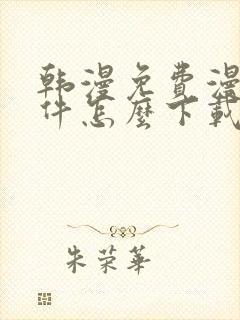 韩漫免费漫
件怎麼下載
朱荣華